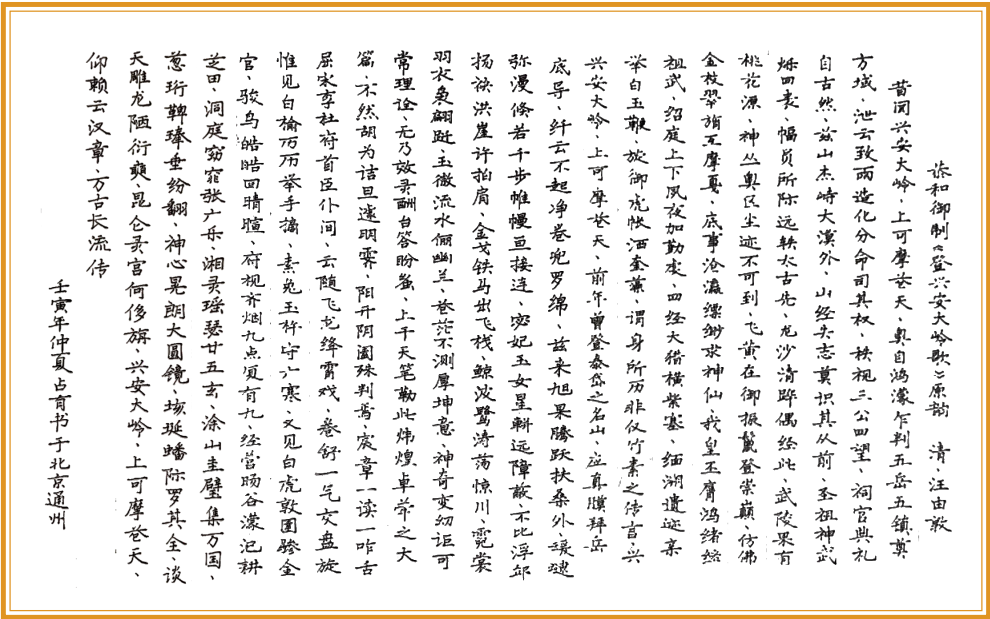 恭和御制《登兴安大岭歌》原韵　清、汪由敦
昔闻兴安大岭、上可摩苍天、奥自鸿濛乍判五岳五镇奠
方域、泄云致雨造化分命司其权、秩视三公四望、祠官典礼
自古然、兹山杰峙大漠外、山经失志莫识其从前、圣祖神武
烁四表、幅员所际远轶太古先、龙沙清跸偶经此、武陵果有
桃花源、神丛奥区尘迹不可到、飞黄在御振鬣登崇巅、仿佛
金枝翠旓互摩戛、底事沧瀛缥缈求神仙、我皇丕膺鸿绪绍
祖武、绍庭上下夙夜加勤虔、四经大猎横紫塞、缅溯遗迹亲
举白玉鞭、旋御虎帐洒奎藻、谓身所历非仅竹素之传言、兴
兴安大岭、上可摩苍天、前年曾登泰岱之名山、应真膜拜岳
底导、纤云不起净卷兜罗绵、兹来旭果腾跃扶桑外、瑷叇
弥漫倏若千步帷幔亘接连、宓妃玉女星軿远障蔽、不比浮邱
扬袂洪崖许拍肩、金戈铁马出飞栈、鲸波鹭涛荡惊川、霓裳
羽衣奂翩跹、玉徽流水俪幽兰、苍茫不测厚坤意、神奇变幻讵可
常理诠、无乃效灵酬白答盼蚃、上干天笔勒此炜煌聿常之大
篇、不然胡为诘旦遽明霁、阳开阴阖殊判焉、宸章一读一咋舌
屈宋李杜府首臣仆间、云随飞龙绛霄戏、卷舒一气交盘旋
惟见白榆历历举手摘、素兔玉杵守广寒、又见白虎敦圉骖金
官、骏鸟皓皓回晴暄、府视齐烟九点复有九、经营旸谷濛汜耕
芝田、洞庭窈窕张广乐、湘灵瑶瑟廿五玄、涂山圭璧集万国、
葱珩鞞琫垂纷翻、神心晃朗大圆镜、垓埏蟠际罗其全、谈
天雕龙陋衍奭、昆仑灵宫何侈旃、兴安大岭、上可摩苍天、
仰赖云汉章、万古长流传
壬寅年仲夏占育书于北京通州